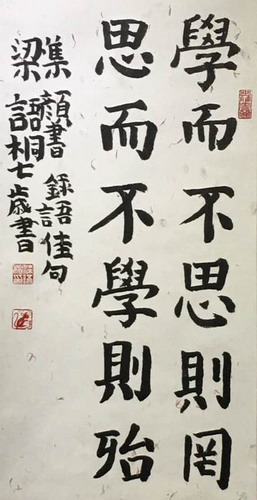 學而不思則罔
思而不學則殆
集顏書 錄語佳句
梁語桐七歲書